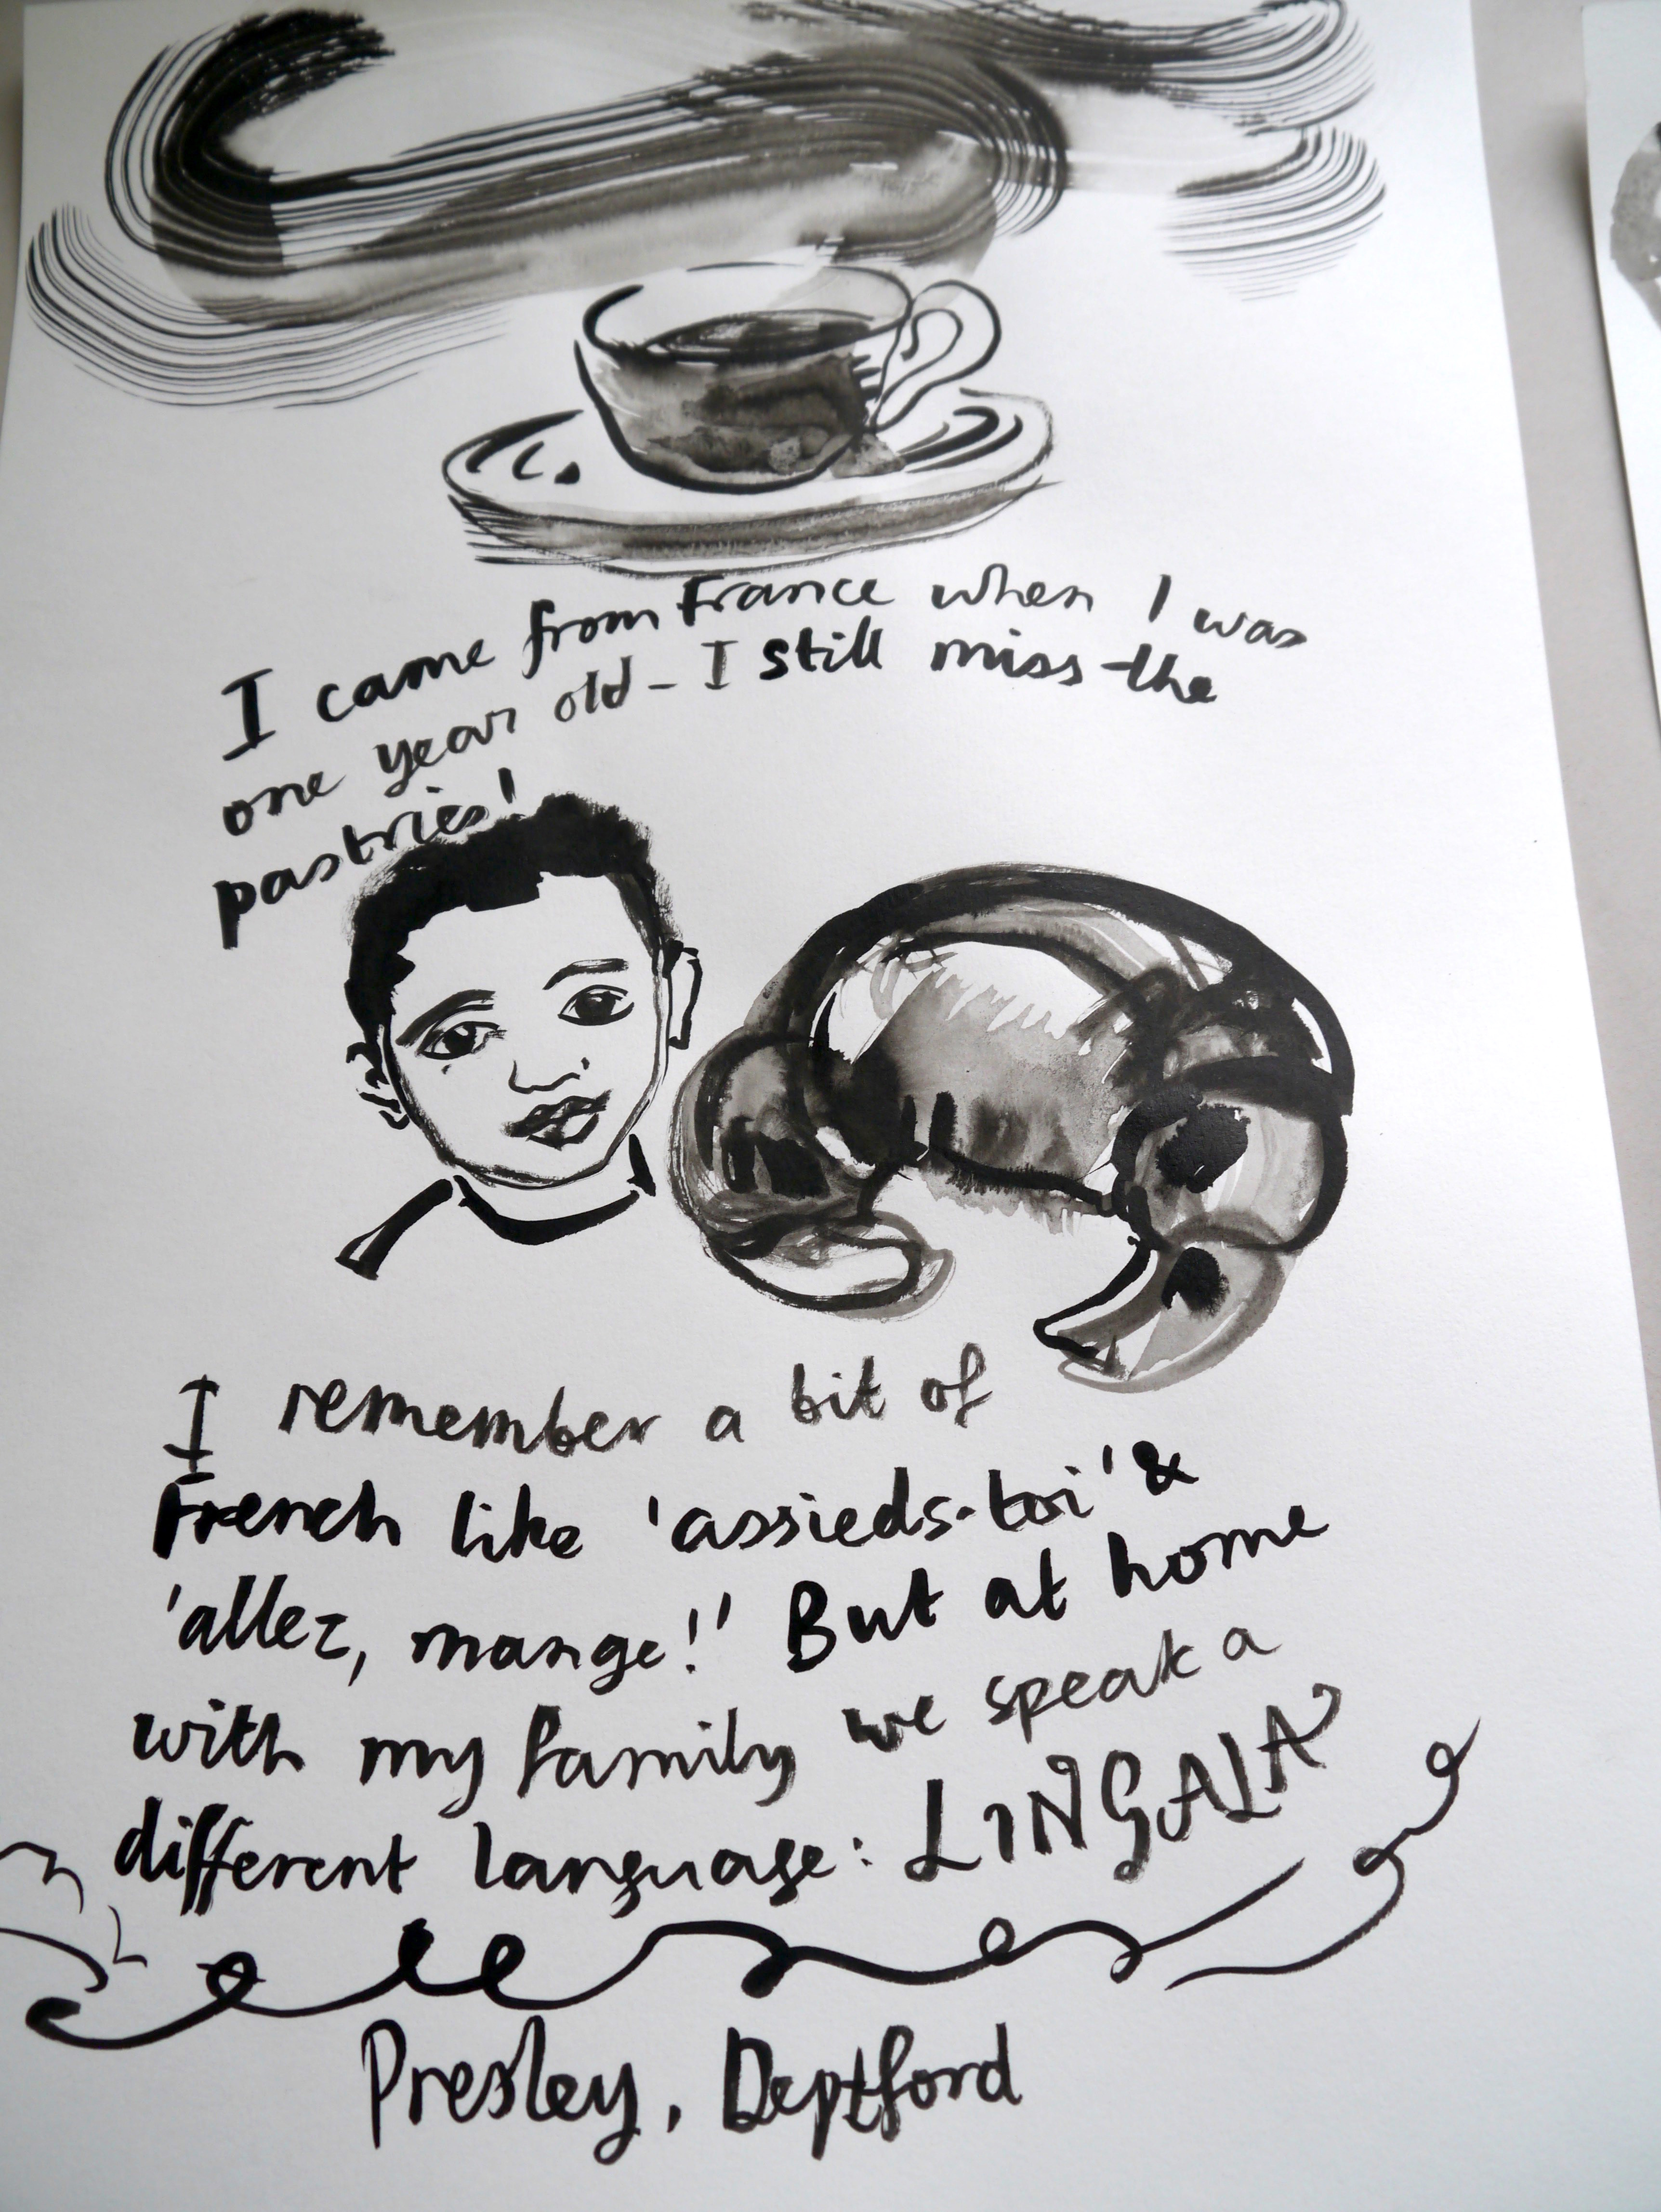 I came from France when I was
one year old - I still miss the
pastries!
I remember a bit of
French like 'assieds-toi' &
'allez, mange!' But at home
with my family we speak a
different language: LINGALA
Presley, Deptford